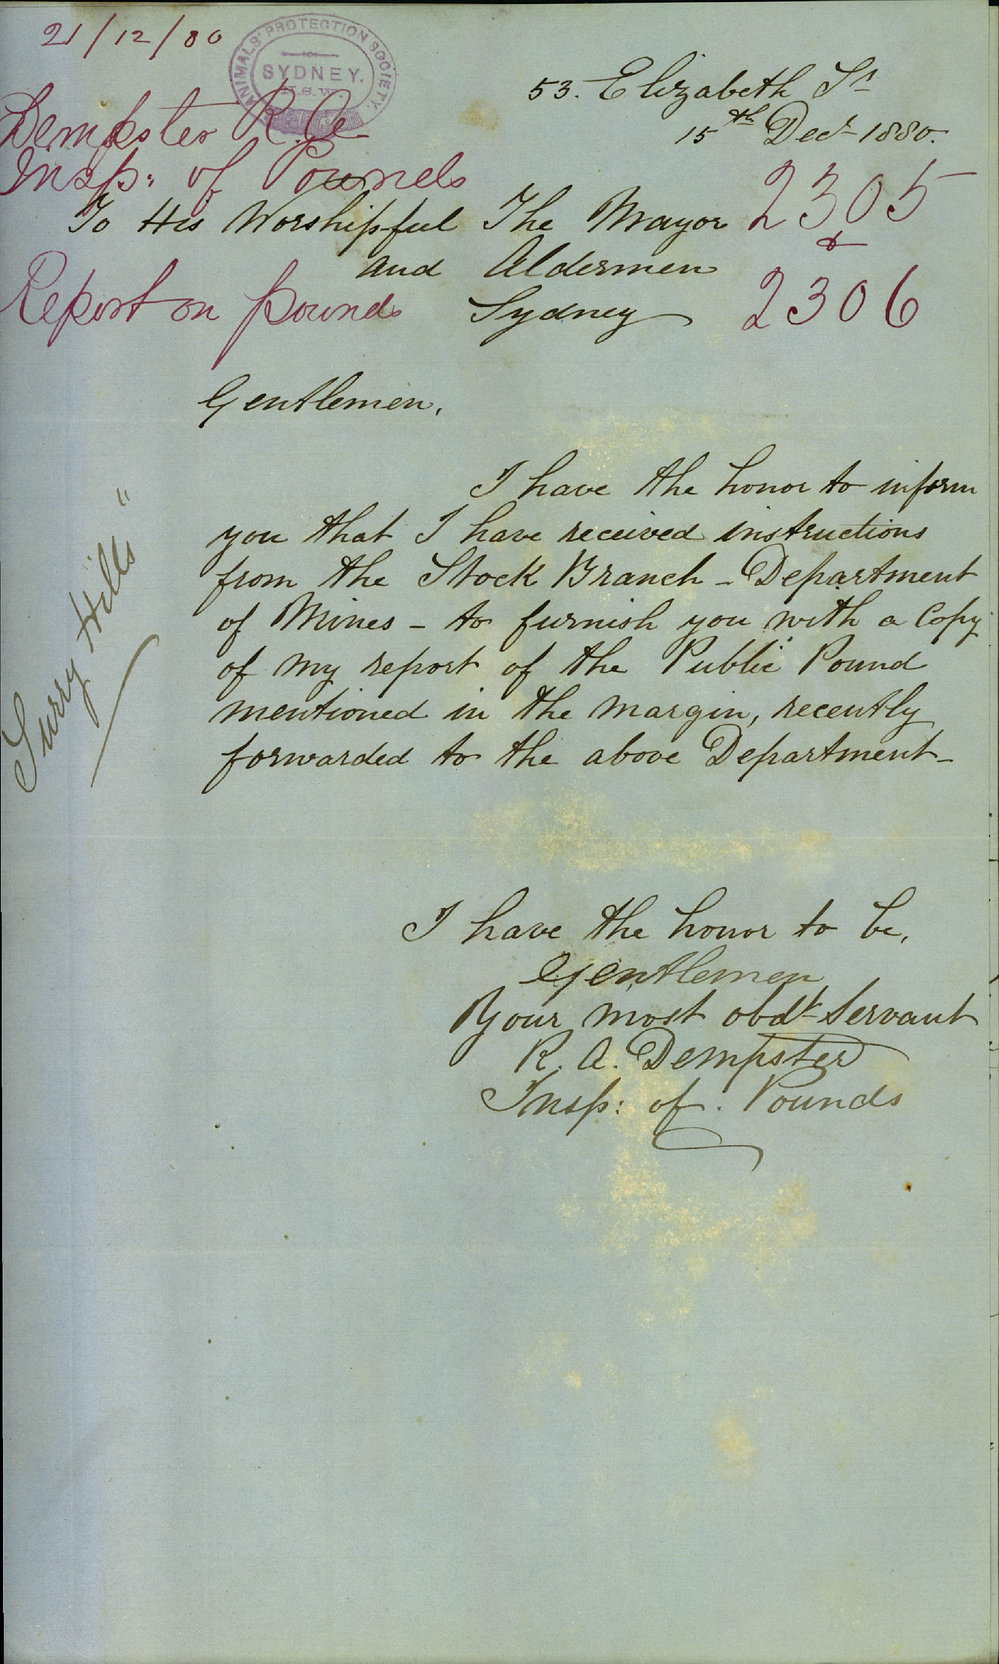 21/12/80
ANIMALS' PROTECTION SOCIETY
SYDNEY.
N.S.W.
53. Elizabeth St
15th Decr 1880.
Dempster R. A.
Insp: of Pounds
2305
&
2306
To His Worshipful The Mayor
and Aldermen
Sydney
Report on pounds
Gentlemen,
I have the honor to inform
you that I have received instructions
from the Stock Branch - Department
of Mines - to furnish you with a Copy
of my report of the Public Pound
mentioned in the margin, recently
forwarded to the above Department -
Surry Hills"
I have the honor to be,
Gentlemen
Your most obdt Servant
R. A. Dempster
Insp: of. Pounds